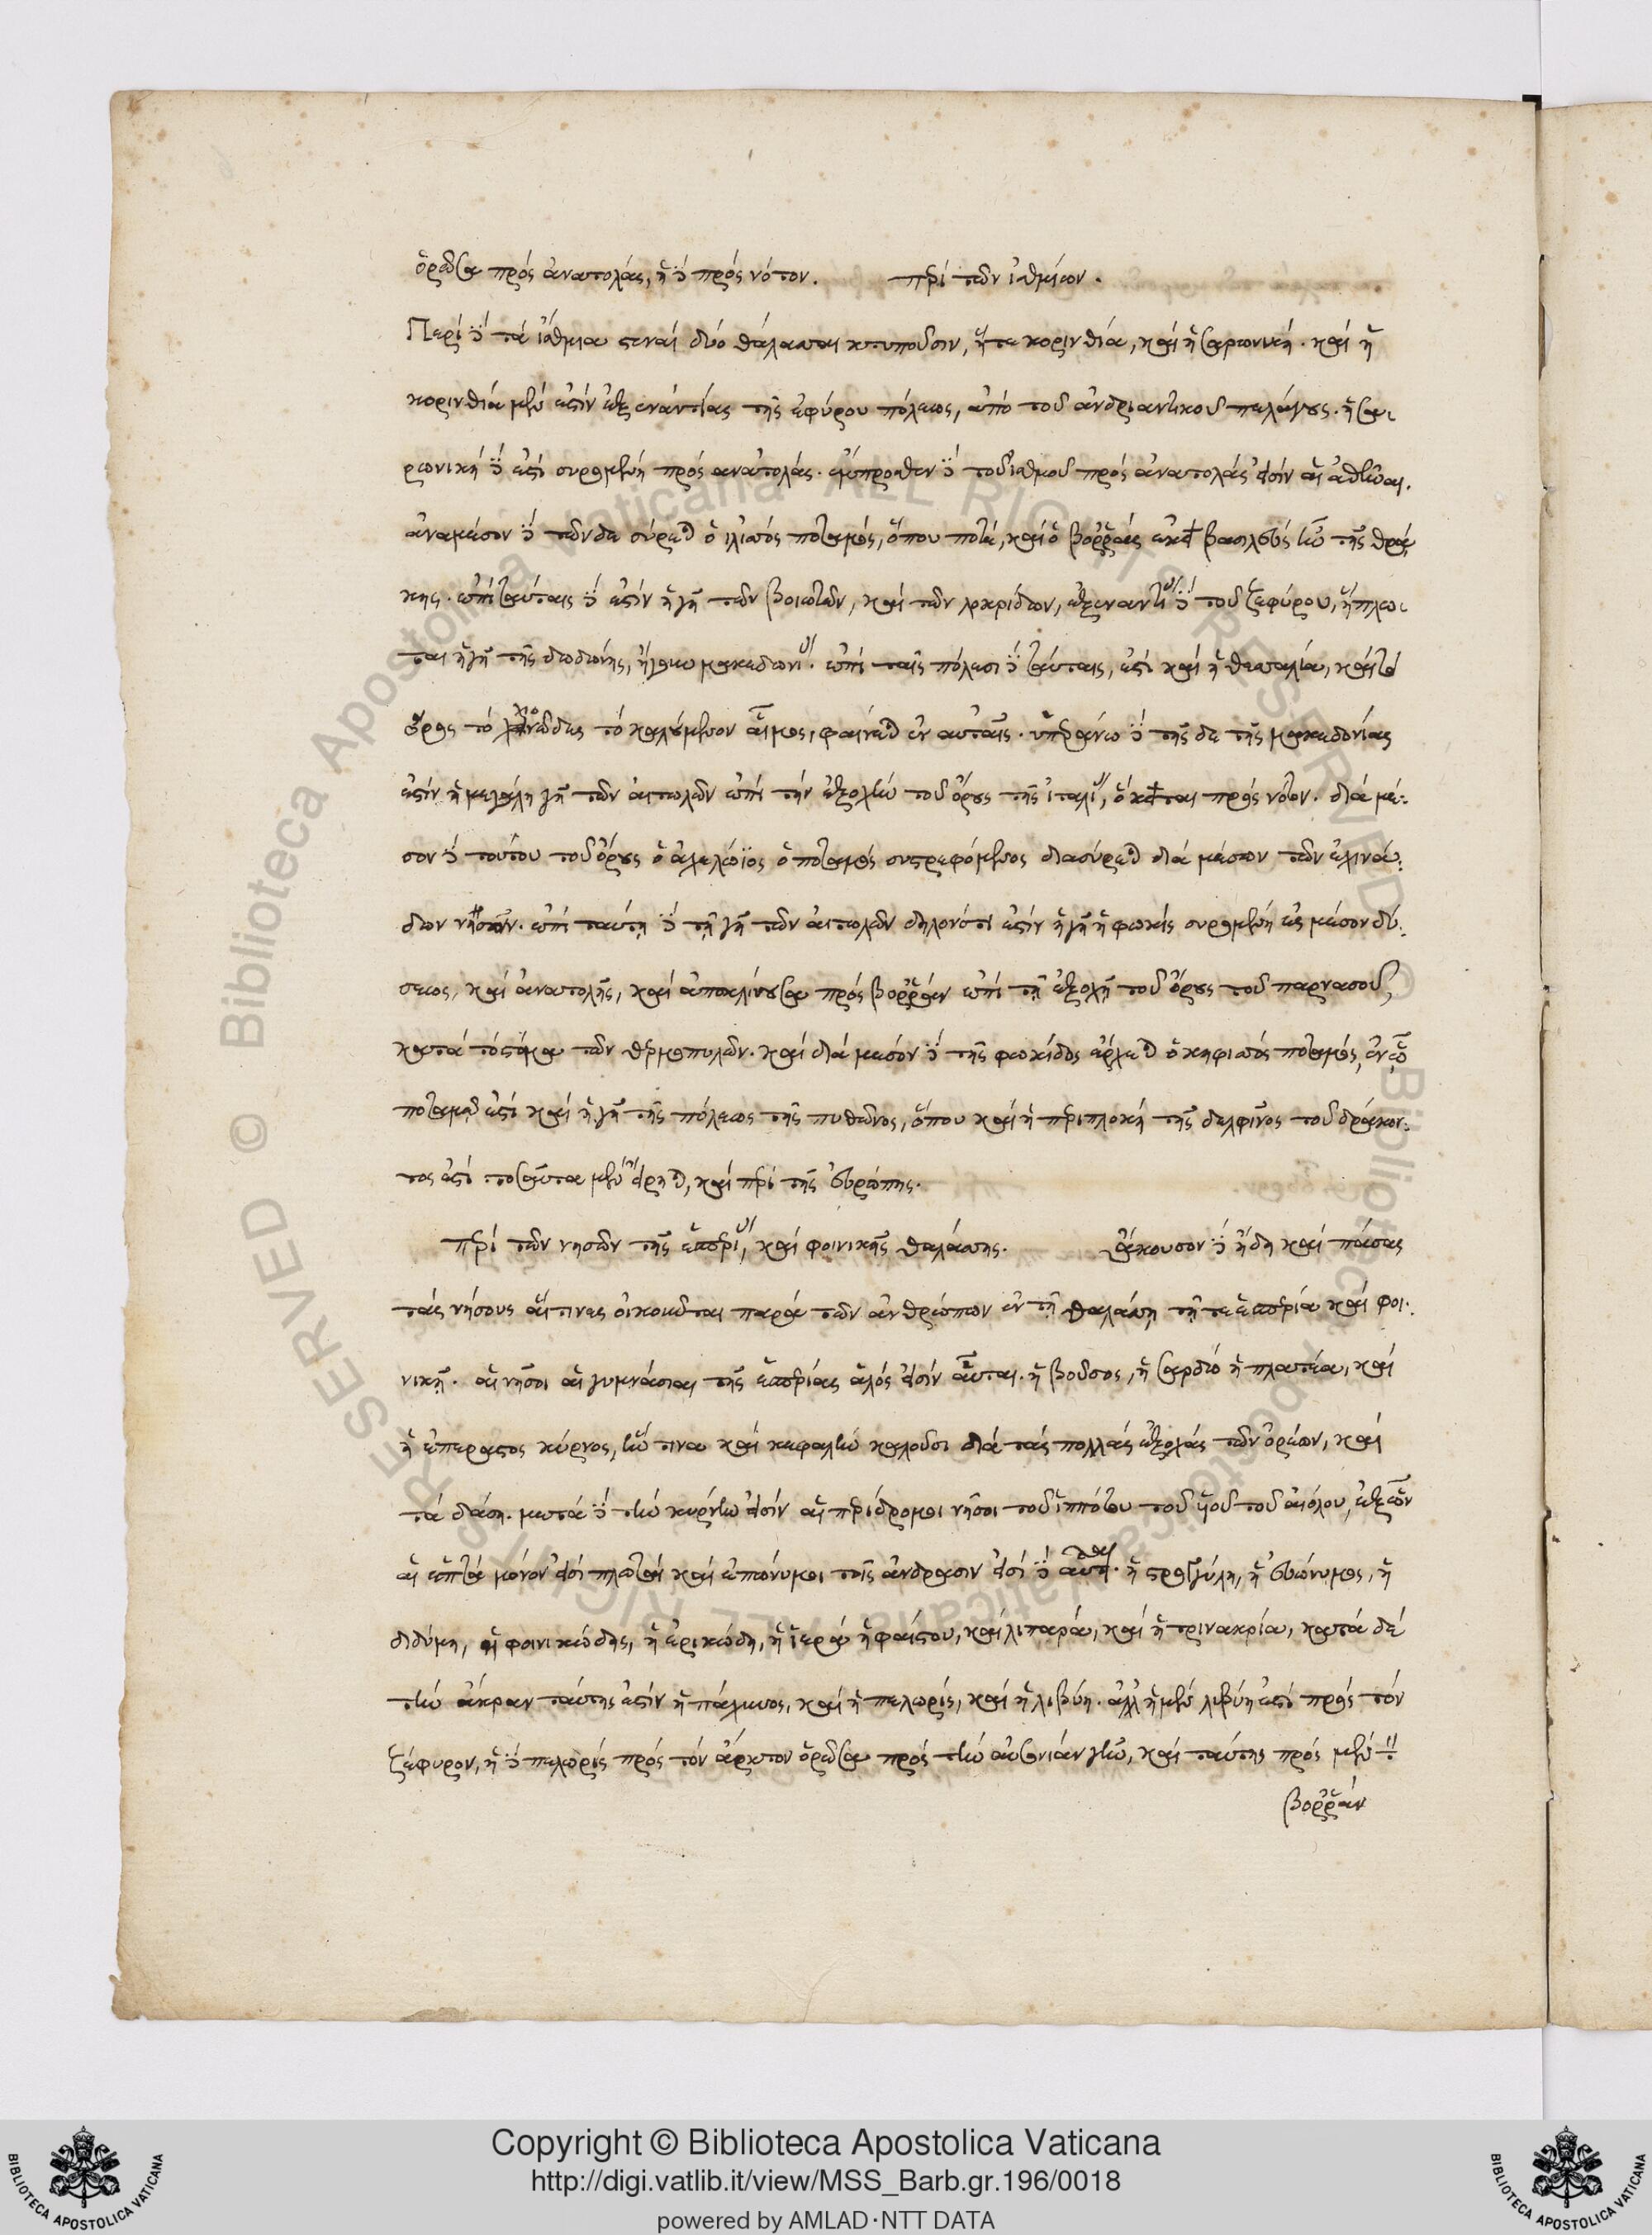 ὁρῶσα πρὸς ἀνατολὰς, ἡ δὲ πρὸς νότον. περὶ τῶν ἰσθμίων.
Περὶ δὲ τὰ ἴσθμια στεναὶ δύο θάλασσαι κτυποῦσιν, ἥτε κορινθία, καὶ ἡ σαρωνική. καὶ ἡ
κορινθία μὲν ἐστὶν ἐξεναντίας τῆς ἐφύρου πόλεως, ἀπὸ τοῦ ἀνδριαντικοῦ πελάγους. ἡ σα
ρωνικὴ δὲ ἐστὶ συρομένη πρὸς ἀνατολάς. ἔμπροσθεν δὲ τοῦ ἰσθμοῦ πρὸς ἀνατολὰς εἰσὶν αἱ ἀθῆναι.
ἀναμέσον δὲ τῶνδε σύρεται ὁ ἰλισσὸς ποταμὸς, ὅπου ποτὲ, καὶ ὁ βοῤῥᾶς ἐκεῖ βασιλεὺς ἦν τῆς θρά
κης. ἐπὶ ταύταις δὲ ἐστὶν ἡ γῆ τῶν βοιωτῶν, καὶ τῶν λοκρίδων, ἐξεναντίας δὲ τοῦ ζεφύρου, ἥπλω
ται ἡ γῆ τῆς δωδώνης, ἤγουν μακεδονίας. ἐπὶ ταῖς πόλεσι δὲ ταύταις, ἐστὶ καὶ ἡ θεσσαλία, καὶ τὸ
ὄρος τὸ χιονῶδες τὸ καλούμενον αἷμος, φαίνεται ἐν αὐταῖς. ὑπεράνω δὲ τῆς δε τῆς μακεδονίας
ἐστὶν ἡ μεγάλη γῆ τῶν αἰτωλῶν ἐπὶ τὴν ἐξοχὴν τοῦ ὄρους τῆς ἰταλίας, ὃ κεῖται πρὸς νότον. διὰ μέ
σον δὲ τούτου τοῦ ὄρους ὁ ἀχελώϊος ὁ ποταμὸς συστρεφόμενος διασύρεται διὰ μέσων τῶν ἐχινά
δων νήσων. ἐπὶ ταύτῃ δὲ τῇ γῇ τῶν αἰτωλῶν δηλονότι ἐστὶν ἡ γῆ ἡ φωκὶς συρομένη εἰς μέσον δύ
σεως, καὶ ἀνατολῆς, καὶ ἀποκλίνουσα πρὸς βοῤῥᾶν ἐπὶ τῇ ἐξοχῇ τοῦ ὄρους τοῦ παρνασοῦ,
κατὰ τὸ στόμα τῶν θερμοπυλῶν. καὶ διὰ μέσον δὲ τῆς φωκίδος ἔρχεται ὁ κηφισσὸς ποταμὸς, ἐν ᾧ
ποταμῷ ἐστὶ καὶ ἡ γῆ τῆς πόλεως τῆς πυθῶνος, ὅπου καὶ ἡ περιπλοκὴ τῆς δελφῖνος τοῦ δράκον
τος ἐστὶ τοσαῦτα μὲν εἴρηται, καὶ περὶ τῆς εὐρώπης.
περὶ τῶν νησῶν τῆς ἑσπερίας, καὶ φοινικῆς θαλάσσης. ἄκουσον δὲ ἤδη καὶ πάσας
τὰς νήσους αἵτινες οἰκοῦνται παρὰ τῶν ἀνθρώπων ἐν τῇ θαλάσσῃ τῇ τε ἑσπερία καὶ φοι
νικῇ. αἱ νῆσοι αἱ γυμνάσιαι τῆς ἑσπερίας ἁλὸς εἰσὶν αὗται. ἡ βοῦσος, ἡ σαρδὼ ἡ πλατεῖα, καὶ
ἡ ἐπέραστος κύρνος, ἣν τινα καὶ κεφαλὴν καλοῦσι διὰ τὰς πολλὰς ἐξοχὰς τῶν ὀρέων, καὶ
τὰ δάση. μετὰ δὲ τὴν κύρνην εἰσὶν αἱ περίδρομοι νῆσοι τοῦ ἱππότου τοῦ υἱοῦ τοῦ αἰόλου, ἐξ ὧν
αἱ ἑπτὰ μόνον εἰσὶ πλωταὶ καὶ ἐπώνυμοι τοῖς ἀνδράσιν εἰσὶ δὲ αὗται. ἡ στρογγύλη, ἡ εὐώνυμος, ἡ
διδύμη, ἡ φοινικώδης, ἡ ἐρικώδη, ἡ ἱερὰ ἡφαίστου, καὶ λιπαρὰ, καὶ ἡ τρινακρία, κατὰ δὲ
τὴν ἄκραν ταύτης ἐστὶν ἡ πάχυνος, καὶ ἡ πελωρὶς, καὶ ἡ λιβύη. ἀλλ' ἡ μὲν λιβύη ἐστὶ πρὸς τὸν
ζέφυρον, ἡ δὲ πελωρὶς πρὸς τὸν ἄρκτον ὁρῶσα πρὸς τὴν αὐσονίαν γῆν, καὶ ταύτης πρὸς μὲν τὸν
βοῤῥᾶν
Copyright © Biblioteca Apostolica Vaticana
http://digi.vatlib.it/view/MSS_Barb.gr.196/0018
powered by AMLAD·NTT DATA
BIBLIOTECA APOSTOLICA VATICANA
BIBLIOTECA APOSTOLICA VATICANA
© Biblioteca Apostolica Vaticana ALL RIGHTS RESERVED
© Biblioteca Apostolica Vaticana ALL RIGHTS RESERVED